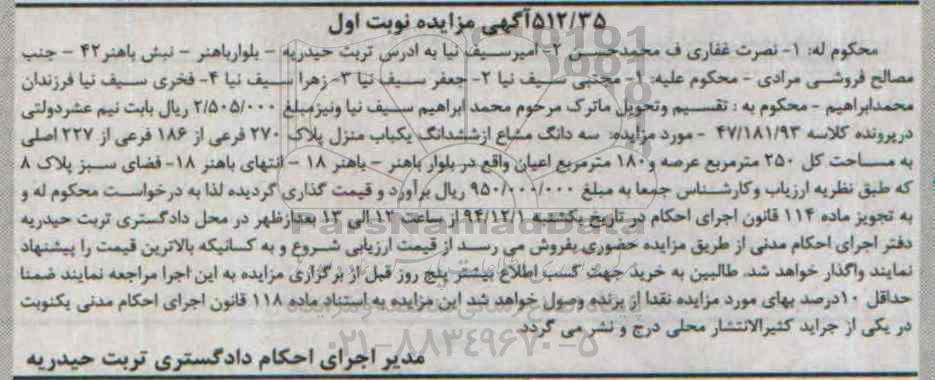 ۵۱۲/۳۵آگهی مزایده نوبت اول
محکوم له: ۱- نصرت غفاری ف محمدحسن ۲- امیرسیف نیا به ادرس تربت حیدریه - بلوارباهنر - نبش باهنر۴۲ - جنب
مصالح فروشی مرادی - محکوم علیه: ۱- مجتبی سیف نیا ۲- جعفر سیف نیا ۳- زهرا سیف نیا ۴- فخری سیف نیا فرزندان
محمدابراهیم - محکوم به : تقسیم وتحویل ماترک مرحوم محمد ابراهیم سیف نیا ونیزمبلغ ۲/۵۰۵/۰۰۰ ریال بابت نیم عشردولتی
درپرونده کلاسه ۴۷/۱۸۱/۹۳ - مورد مزایده: سه دانگ مشاع ازششدانگ یکباب منزل پلاک ۲۷۰ فرعی از ۱۸۶ فرعی از ۲۲۷ اصلی
به مساحت کل ۲۵۰ مترمربع عرصه و۱۸۰ مترمربع اعیان واقع در بلوار باهنر - باهنر ۱۸ - انتهای باهنر ۱۸- فضای سبز پلاک ۸
که طبق نظریه ارزیاب وکارشناس جمعا به مبلغ ۹۵۰/۰۰۰/۰۰۰ ریال برآورد و قیمت گذاری گردیده لذا به درخواست محکوم له و
به تجویز ماده ۱۱۴ قانون اجرای احکام در تاریخ یکشنبه ۹۴/۱۲/۱ از ساعت ۱۲ الی ۱۳ بعدازظهر در محل دادگستری تربت حیدریه
دفتر اجرای احکام مدنی از طریق مزایده حضوری بفروش می رسد از قیمت ارزیابی شروع و به کسانیکه بالاترین قیمت را پیشنهاد
نمایند واگذار خواهد شد. طالبین به خرید جهت کسب اطلاع بیشتر پنج روز قبل از برگزاری مزایده به این اجرا مراجعه نمایند ضمنا
حداقل ۱۰درصد بهای مورد مزایده نقدا از برنده وصول خواهد شد این مزایده به استناد ماده ۱۱۸ قانون اجرای احکام مدنی یکنوبت
در یکی از جراید کثیرالانتشار محلی درج و نشر می گردد
مدیر اجرای احکام دادگستری تربت حیدریه
ParsNamadData
۰۲۱-۸۸۳۴۹۶۷۰-۵